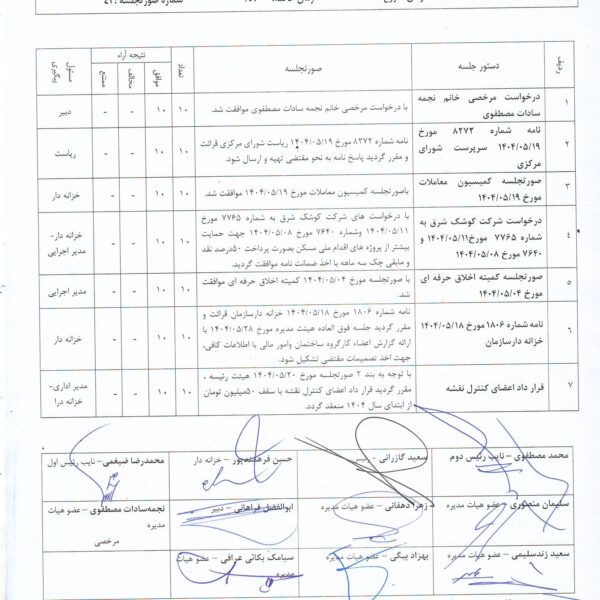 شماره صورتجلسه: ۴۱
ردیف
دستور جلسه
صورتجلسه
تعداد
نتیجه آراء
موافق
مخالف
ممتنع
مسئول پیگیری
۱
درخواست مرخصی خانم نجمه
سادات مصطفوی
با درخواست مرخصی خانم نجمه سادات مصطفوی موافقت شد.
۱۰
۱۰
-
-
دبیر
۲
نامه شماره ۸۲۷۲ مورخ
۱۴۰۴/۰۵/۱۹ سرپرست شورای
مرکزی
نامه شماره ۸۲۷۲ مورخ ۱۴۰۴/۰۵/۱۹ ریاست شورای مرکزی قرائت
و مقرر گردید پاسخ نامه به نحو مقتضی تهیه و ارسال شود.
۱۰
۱۰
-
-
ریاست
۳
صورتجلسه کمیسیون معاملات و
مورخ ۱۴۰۴/۰۵/۱۹
باصورتجلسه کمیسیون معاملات مورخ ۱۴۰۴/۰۵/۱۹ موافقت شد.
۱۰
۱۰
-
-
خزانه دار
۴
درخواست شرکت کوشک شرق به
شماره ۷۷۶۵ مورخ۱۴۰۴/۰۵/۱۱ و
۷۶۴۰ مورخ ۱۴۰۴/۰۵/۰۸
با درخواست های شرکت کوشک شرق به شماره ۷۷۶۵ مورخ
۱۴۰۴/۰۵/۱۱ وشماره ۷۶۴۰ مورخ ۱۴۰۴/۰۵/۰۸ جهت حمایت
بیشتر از پروژه های اقدام ملی مسکن بصورت پرداخت ۵۰درصد نقد
و مابقی چک سه ماهه با اخذ ضمانت نامه موافقت گردید.
۱۰
۱۰
-
-
خزانه دار-
مدیر اجرایی
۵
صورتجلسه کمیته اخلاق حرفه ای
مورخ ۱۴۰۴/۰۵/۰۴
با صورتجلسه مورخ ۱۴۰۴/۰۵/۰۴ کمیته اخلاق حرفه ای موافقت
شد.
۱۰
۱۰
-
-
مدیر اجرایی
۶
نامه شماره ۱۸۰۶ مورخ ۱۴۰۴/۰۵/۱۸
خزانه دارسازمان
نامه شماره ۱۸۰۶ مورخ ۱۴۰۴/۰۵/۱۸ خزانه دارسازمان قرائت و
مقرر گردید جلسه فوق العاده هیئت مدیره مورخ ۱۴۰۴/۰۵/۲۸ با
ارائه گزارش اعضاء کارگروه ساختمان وامور مالی با اطلاعات کافی،
جهت اخذ تصمیمات مقتضی تشکیل شود.
۱۰
۱۰
-
-
خزانه دار
۷
قرار داد اعضای کنترل نقشه
با توجه به بند ۲ صورتجلسه مورخ ۱۴۰۴/۰۵/۲۰ هیئت رئیسه ،
مقرر گردید قرار داد اعضای کنترل نقشه با سقف ۵۰میلیون تومان
از ابتدای سال ۱۴۰۴ منعقد گردد.
۱۰
۱۰
-
-
مدیر اداری-
خزانه درا
محمد مصطفوی – نایب رئیس دوم
سعید گازرانی – رئیس
حسن فرهمندپور – خزانه دار
محمدرضا ضیغمی – نایب رئیس اول
سلیمان منصوری – عضو هیات مدیره
زهرا دهقانی – عضو هیات مدیره
ابوالفضل فراهانی – دبیر
نجمه سادات مصطفوی – عضو هیات
مدیره
مرخصی
سعید زندسلیمی – عضو هیات مدیره
بهزاد بیگی – عضو هیات مدیره
سیامک بکائی عراقی – عضو هیات
مدیره